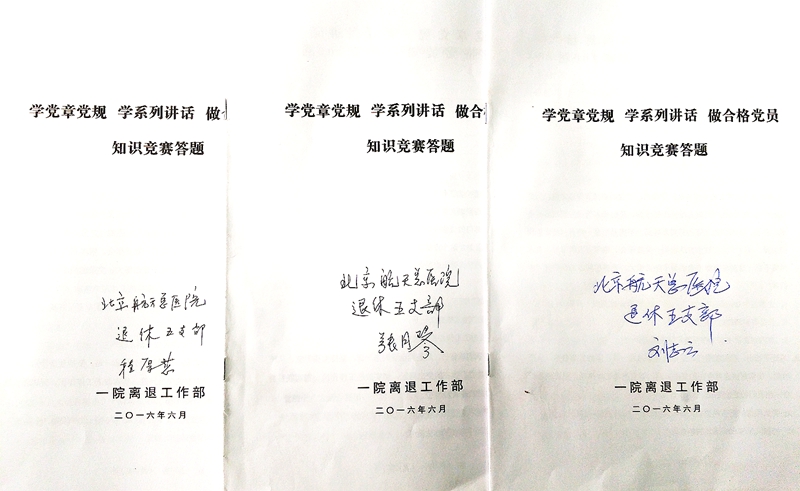 学党章党规 学系列讲话 做合
知识竞赛答题
北京航天总医院
退休五支部
一院离退工作部
二〇一六年六月
学党章党规 学系列讲话 做合
知识竞赛答题
北京航天总医院
退休五支部
张月琴
一院离退工作部
二〇一六年六月
学党章党规 学系列讲话 做合格党员
知识竞赛答题
北京航天总医院
退休五支部
刘志云
一院离退工作部
二〇一六年六月